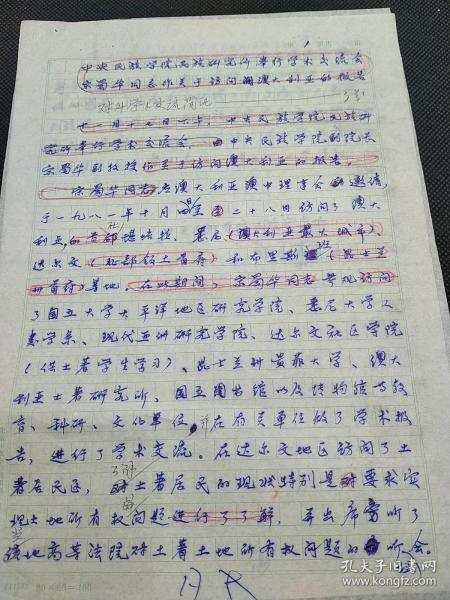 中央民族学院民族研究所举行学术交流会
宗蜀华同志作关于访问澳大利亚的报告
对外学术交流简讯
十一月十七日下午，中央民族学院民族研
究所举行学术交流会，中央民族学院副院长
宗蜀华副教授作关于访问澳大利亚的报告。
宗蜀华同志应澳大利亚澳中理事会邀请，
于一九八一年十月四至二十八日访问了澳大
利亚的首都堪培拉、悉尼（澳大利亚最大城市）
达尔文（北部领土首府）和布里斯班（昆士兰
州首府）等地。在此期间，宗蜀华同志参观访问
了国立大学太平洋地区研究学院、悉尼大学人
类学系、现代亚洲研究学院、达尔文社区学院
（供土著学生学习）、昆士兰州贵菲大学、澳大
利亚土著研究所、国立图书馆以及博物馆等教
育、科研、文化单位，并在有关单位做了学术报
告，进行了学术交流。在达尔文地区访问了土
著居民区，了解
对土著居民的现状特别是对要求实
现土地所有权问题进行了了解，并出席旁听了
该地高等法院对土著土地所有权问题的听会。
20×20=400
孔夫子旧书网